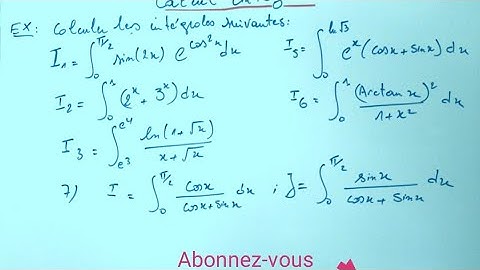 Calcul
EX: Calculer les intégrales suivantes:
I₁ = ∫₀^{π/2} sin(2x) e^{cos²x} dx
I₅ = ∫₀^{ln√3} eˣ(cosx + sinx) dx
I₂ = ∫₀¹ (2ˣ + 3ˣ) dx
I₆ = ∫₀¹ (Arctan x)² / (1+x²) dx
I₃ = ∫_{e³}^{e⁴} ln(1+√x) / (x+√x)
7) I = ∫₀^{π/2} cosx / (cosx+sinx) dx ; J = ∫₀^{π/2} sinx / (cosx + sinx) dx
Abonnez-vous